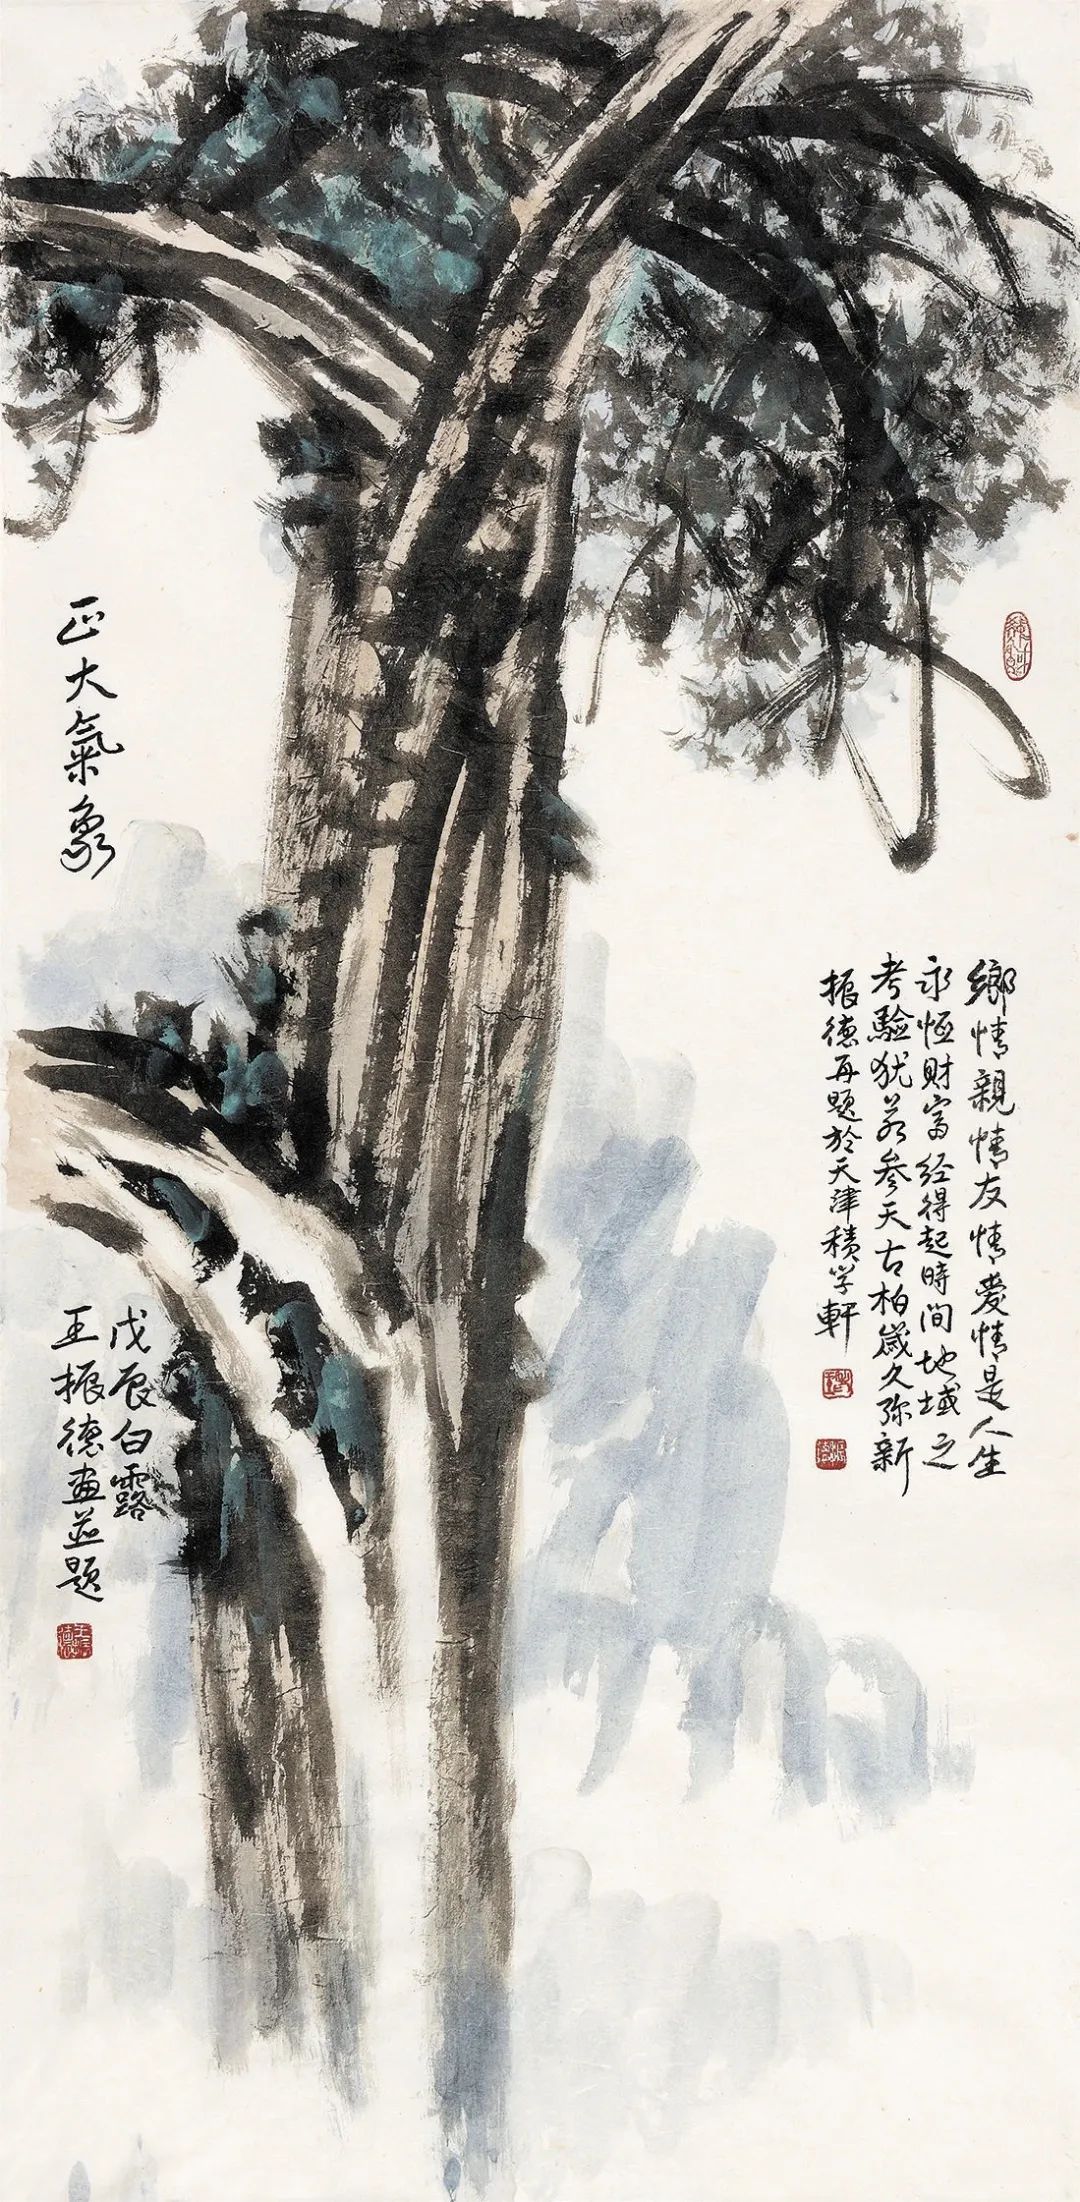 鄉情親情友情愛情是人生
永恒財富经得起時间地域之
考驗犹若参天古柏歲久弥新
振德再题於天津積学軒
正大氣象
戊辰白露
王振德畫並题